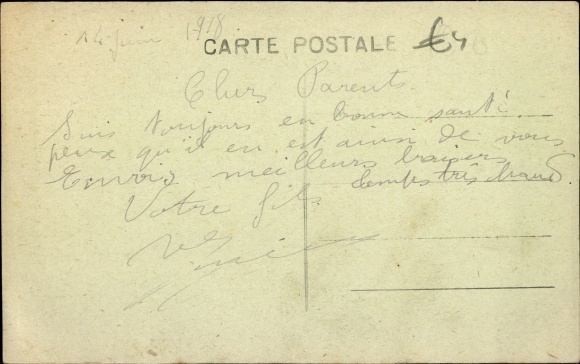 14 juin 1918
CARTE POSTALE
£4
Chers Parents
Suis toujours en bonne santé.
peux qu'il en est ainsi de vous
Envoie meilleurs baisers
temps très chaud
Votre fils